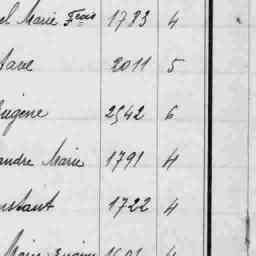 el Marie Fcois 1783 4
tave 2011 5
Eugène 2542 6
andre Marie 1791 4
nstant 1722 4
Marie Eugène 4